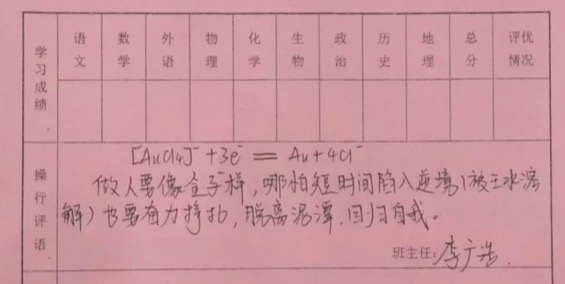 学习成绩 语文 数学 外语 物理 化学 生物 政治 历史 地理 总分 评优情况
操行评语
[AuCl4]⁻ +3e⁻ == Au+4Cl⁻
做人要像金子一样，哪怕短时间陷入逆境（被王水溶
解）也要奋力挣扎，脱离泥潭，回归自我。
班主任：李广浩.